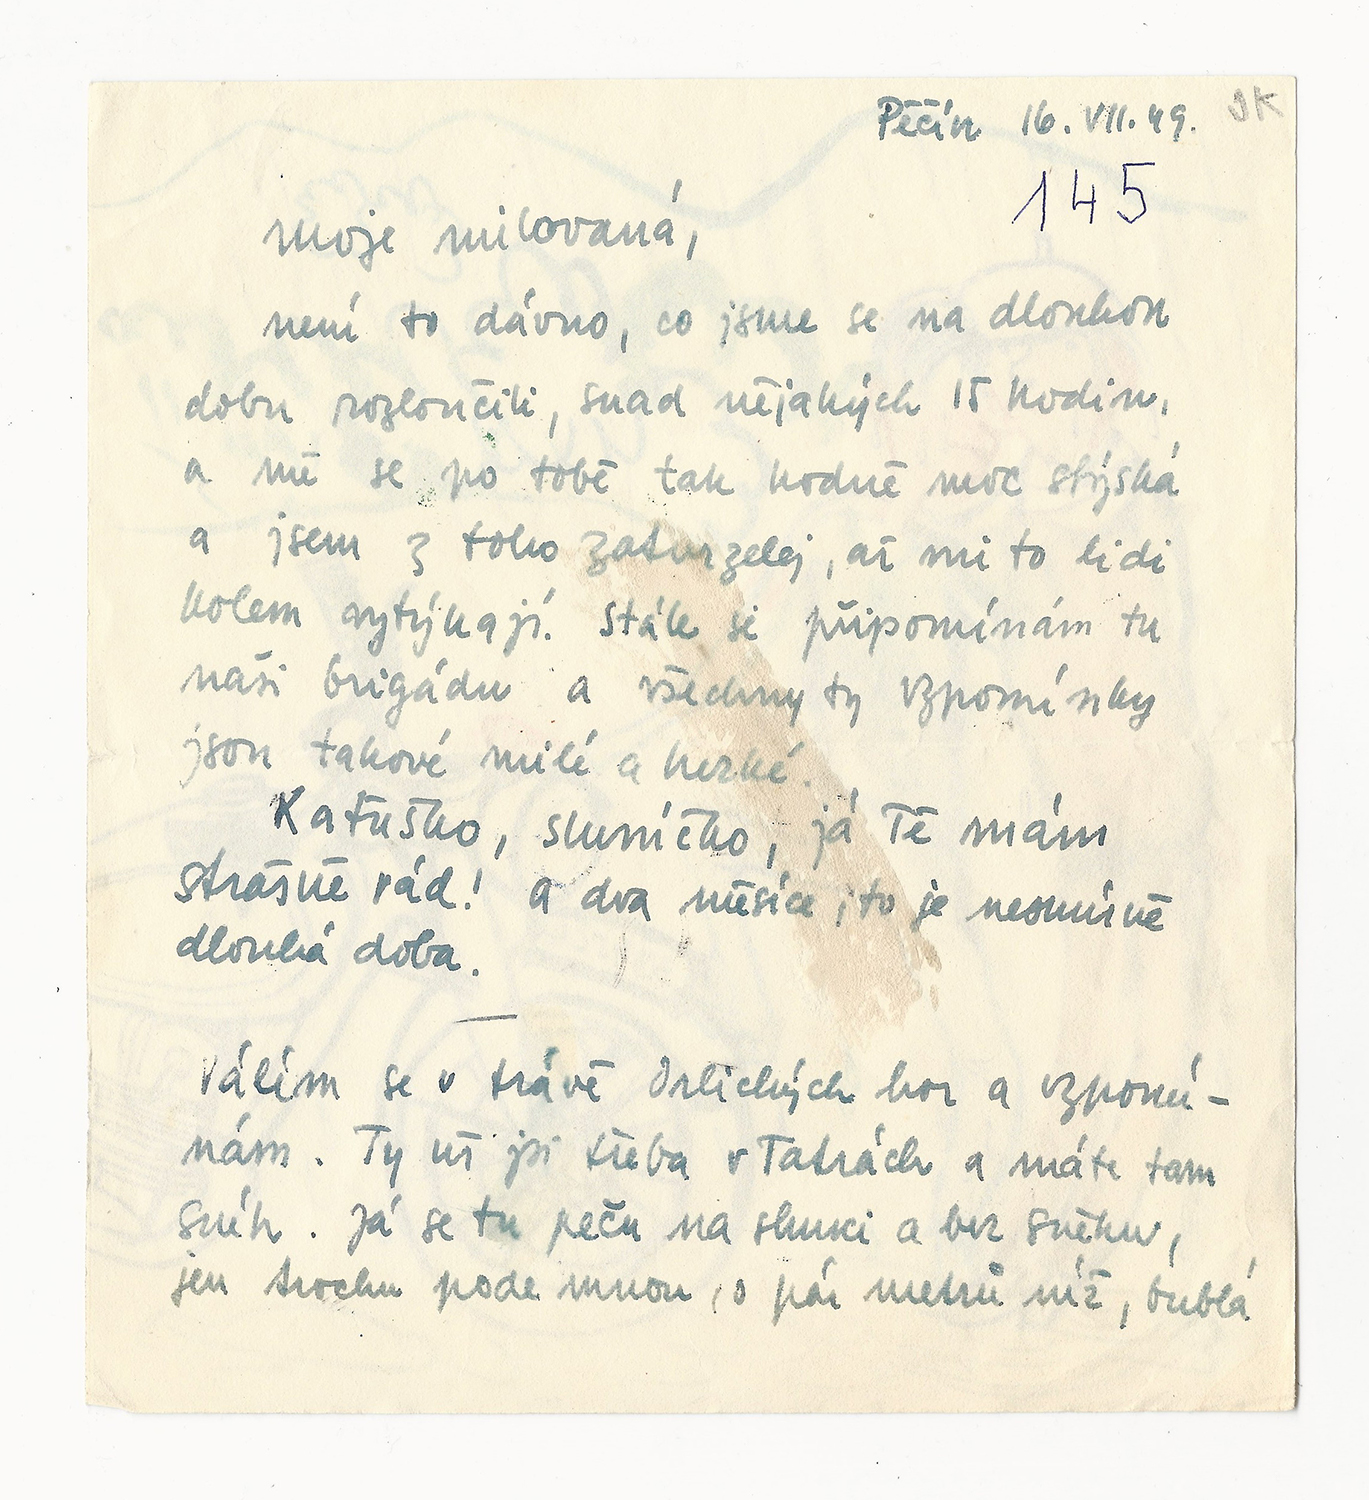 Pěčín 16. VII. 49. JK
145
Moje milovaná,
není to dávno, co jsme se na dlouhou
dobu rozloučili, snad nějakých 15 hodin,
a mě se po tobě tak hodně moc stýská
a jsem z toho zatvrzelej, až mi to lidi
kolem vytýkají. Stále si připomínám tu
naši brigádu a všechny ty vzpomínky
jsou takové milé a hezké.
Kaťuško, sluníčko, já Tě mám
strašně rád! a dva měsíce, to je nesmírně
dlouhá doba.
Válím se v trávě Orlických hor a vzpomí-
nám. Ty už jsi třeba v Tatrách a máte tam
sníh. Já se tu peču na slunci a bez sněhu,
jen trochu pode mnou, o pár metrů níž, bublá